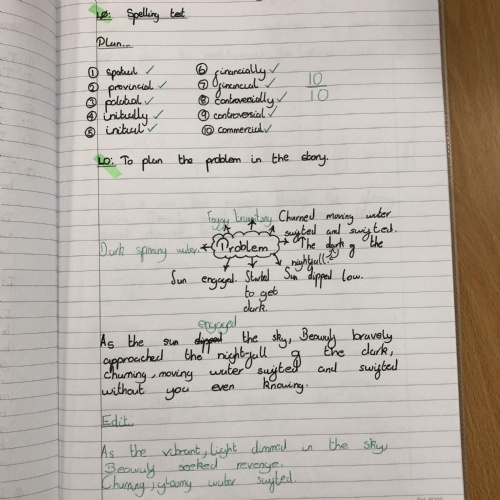 LO: Spelling test
Plan...
① spatial ✓ ⑥ financially ✓
② provincial ✓ ⑦ financial ✓ 10
③ palatial ✓ ⑧ controversially ✓ 10
④ initially ✓ ⑨ controversial ✓
⑤ initial ✓ ⑩ commercial ✓
LO: To plan the problem in the story.
Foggy Churned moving water
swifted and swifted.
Dark spinning water. Problem The dark of the
nightfall.
Sun engaged. Started Sun dipped low.
to get
dark.
engaged
As the sun dipped the sky, Beowulf bravely
approached the night-fall of the dark,
Churning, moving water swifted and swifted
without you even knowing.
Edit
As the vibrant, light dimmed in the sky,
Beowulf seeked revenge.
Churning, gloomy water swifted.